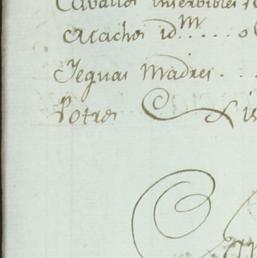 Cavallos inservibles
Machos id.m ..... 
Yeguas Madres ...
Potros